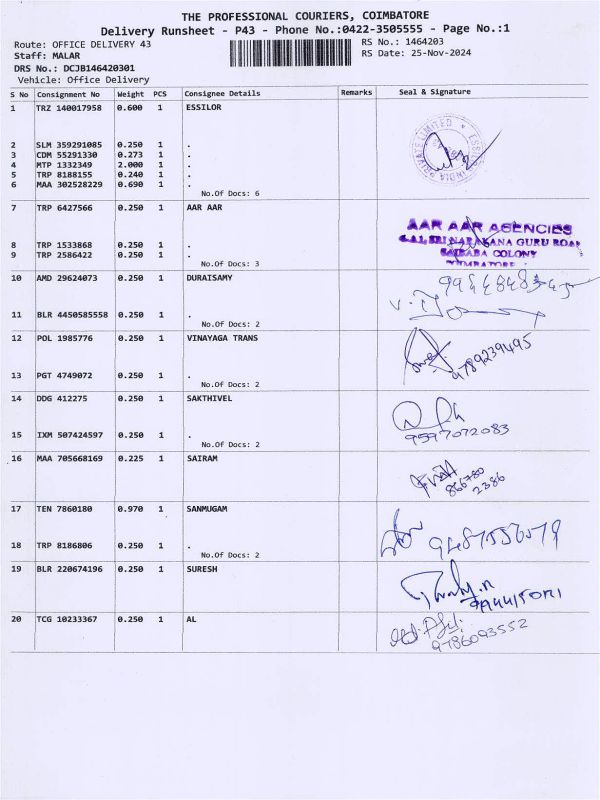 THE PROFESSIONAL COURIERS, COIMBATORE
Delivery Runsheet - P43 - Phone No.:0422-3505555 - Page No.:1
Route: OFFICE DELIVERY 43 RS No.: 1464203
Staff: MALAR RS Date: 25-Nov-2024
DRS No.: DCJB146420301
Vehicle: Office Delivery
S No Consignment No Weight PCS Consignee Details Remarks Seal & Signature
1 TRZ 140017958 0.600 1 ESSILOR
2 SLM 359291085 0.250 1 .
3 CDM 55291330 0.273 1 .
4 MTP 1332349 2.000 1 .
5 TRP 8188155 0.240 1 .
6 MAA 302528229 0.690 1 .
No.Of Docs: 6
7 TRP 6427566 0.250 1 AAR AAR
AAR AAR AGENCIES
8 TRP 1533868 0.250 1 .
9 TRP 2586422 0.250 1 .
SAIBABA COLONY
COIMBATORE
No.Of Docs: 3
10 AMD 29624073 0.250 1 DURAISAMY
11 BLR 4450585558 0.250 1 .
No.Of Docs: 2
12 POL 1985776 0.250 1 VINAYAGA TRANS
9789239495
13 PGT 4749072 0.250 1 .
No.Of Docs: 2
14 DDG 412275 0.250 1 SAKTHIVEL
15 IXM 507424597 0.250 1 .
9597072083
No.Of Docs: 2
16 MAA 705668169 0.225 1 SAIRAM
866780
2386
17 TEN 7860180 0.970 1 SANMUGAM
18 TRP 8186806 0.250 1 .
No.Of Docs: 2
19 BLR 220674196 0.250 1 SURESH
20 TCG 10233367 0.250 1 AL
9786093552